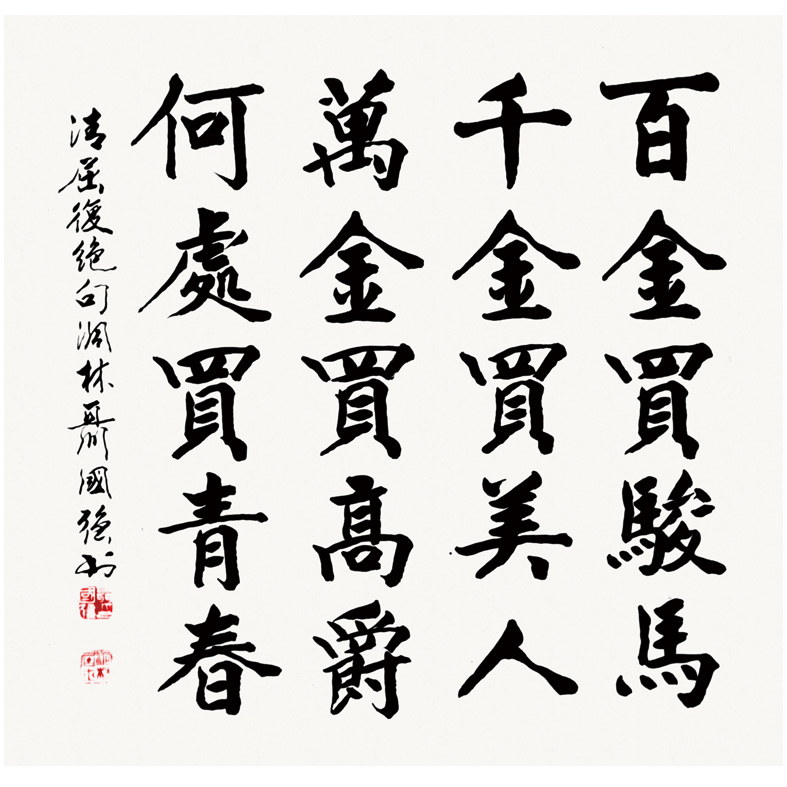 百金買駿馬
千金買美人
萬金買高爵
何處買青春
清屈復绝句洞林聶國強书